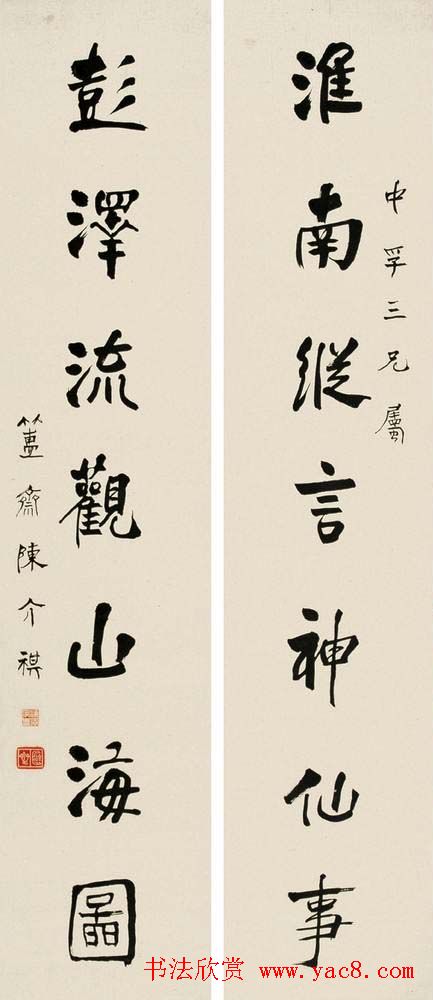 中孚三兄屬
淮南縱言神仙事
彭澤流觀山海圖
簠齋陳介祺
书法欣赏 www.yac8.com